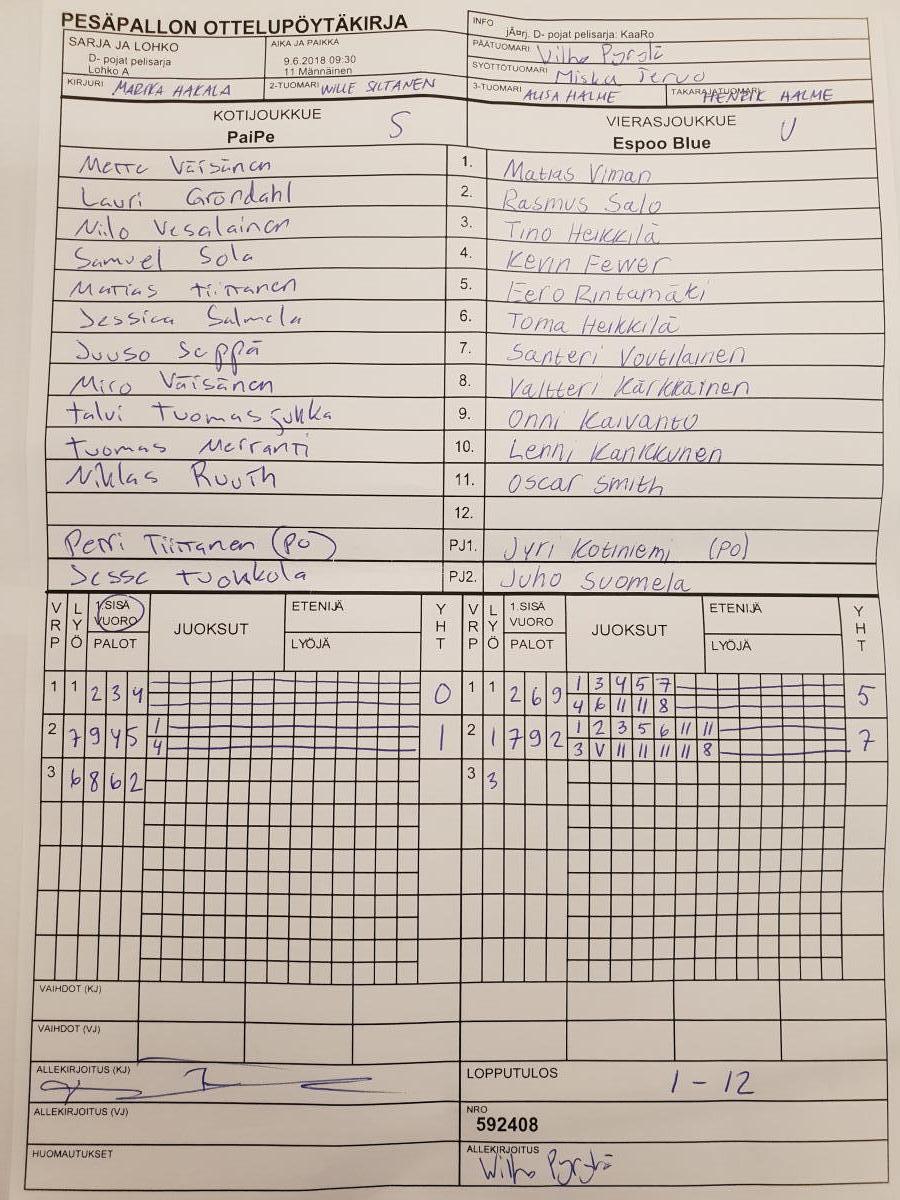 PESÄPALLON OTTELUPÖYTÄKIRJA
INFO
jÄ¤rj. D- pojat pelisarja: KaaRo
SARJA JA LOHKO
D- pojat pelisarja
Lohko A
AIKA JA PAIKKA
9.6.2018 09:30
11 Männäinen
PÄÄTUOMARI Vilho Pyrstä
SYÖTTÖTUOMARI Miska Tervo
KIRJURI MARIKA HAKALA
2-TUOMARI WILLE SILTANEN
3-TUOMARI ALISA HALME
TAKARAJATUOMARI HENRIK HALME
KOTIJOUKKUE S
PaiPe
VIERASJOUKKUE U
Espoo Blue
Mette Väisänen 1. Matias Viman
Lauri Gröndahl 2. Rasmus Salo
Niilo Vesalainen 3. Tino Heikkilä
Samuel Sola 4. Kevin Fewer
Matias Tiittanen 5. Eero Rintamäki
Jessica Salmela 6. Toma Heikkilä
Juuso Seppä 7. Santeri Voutilainen
Miro Väisänen 8. Valtteri Kärkkäinen
Talvi Tuomasjukka 9. Onni Kaivanto
Tuomas Merranti 10. Lenni Kankkunen
Niklas Ruuth 11. Oscar Smith
12.
Petri Tiittanen (PO) PJ1. Jyri Kotiniemi (PO)
Jesse Tuokkola PJ2. Juho Suomela
VRP LYÖ 1.SISÄ VUORO PALOT JUOKSUT ETENIJÄ LYÖJÄ YHT VRP LYÖ 1.SISÄ VUORO PALOT JUOKSUT ETENIJÄ LYÖJÄ YHT
1 1 2 3 4 0 1 1 2 6 9 1 3 4 5 7 5
4 6 11 11 8
2 7 9 4 5 1 1 2 1 7 9 2 1 2 3 5 6 11 11 7
4 3 V 11 11 11 11 8
3 6 8 6 2 3 3
VAIHDOT (KJ)
VAIHDOT (VJ)
ALLEKIRJOITUS (KJ)
LOPPUTULOS 1 - 12
ALLEKIRJOITUS (VJ)
NRO
592408
HUOMAUTUKSET
ALLEKIRJOITUS
Wilho Pyrstä